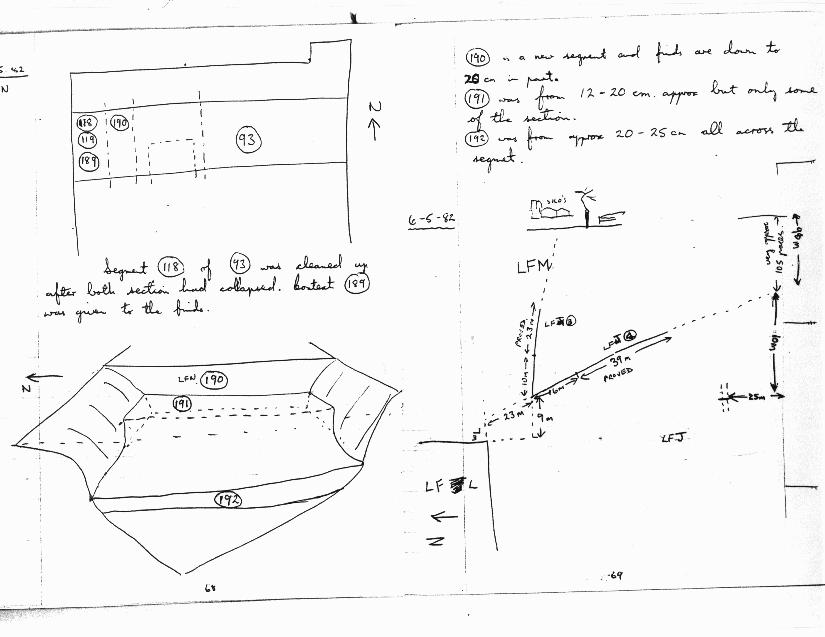 5-82
N
118
119
189
190
93
N
Segment 118 of 93 was cleaned up
after both section had collapsed. Context 189
was given to the finds.
N
LFN 190
191
192
68
190 is a new segment and finds are down to
25 cm in part.
191 was from 12-20 cm. approx but only some
of the section.
192 was from approx 20-25 cm all across the
segment.
6-5-82
SILO'S
LFM
very approx
105 paces
PROVED
23m
10m
16m
39m
PROVED
10m
25m
23m
9m
WL
LFJ
LF L
N
69